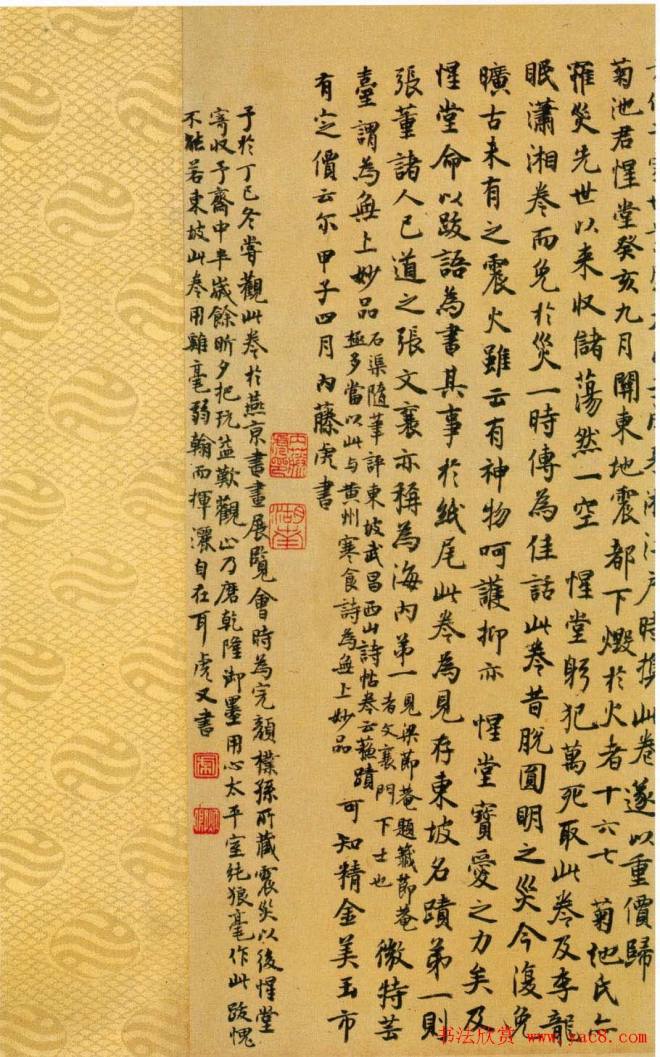 江戶時攜此卷遂以重價歸
菊池君惺堂癸亥九月關東地震都下燬於火者十六七 菊池氏亦
罹災先世以來収儲蕩然一空 惺堂躬犯萬死取此卷及李龍
眠瀟湘卷而免於災一時傳為佳話此卷昔脫圓明之災今復免
曠古未有之震火雖云有神物呵護抑亦 惺堂寶愛之力矣及
惺堂命以跋語為書其事於紙尾此卷為見存東坡名蹟第一則
張董諸人已道之張文襄亦稱為海內第一 見梁節菴題籤節菴者文襄門下士也 微特芸
臺謂為無上妙品 石渠隨筆評東坡武昌西山詩帖卷云蘇蹟極多當以此與黃州寒食詩為無上妙品 可知精金美玉市
有定價云尔 甲子四月內藤虎書
內藤虎印
湖南
予於丁巳冬嘗觀此卷於燕京書畫展覽會時為完顏樸孫所藏震災以後惺堂
寄収予齋中半歲餘昕夕把玩益歎觀止乃磨乾隆御墨用心太平室純狼毫作此跋愧
不能若東坡此卷用雞毫弱翰而揮灑自在耳虎又書
书法欣赏 www.yac8.com